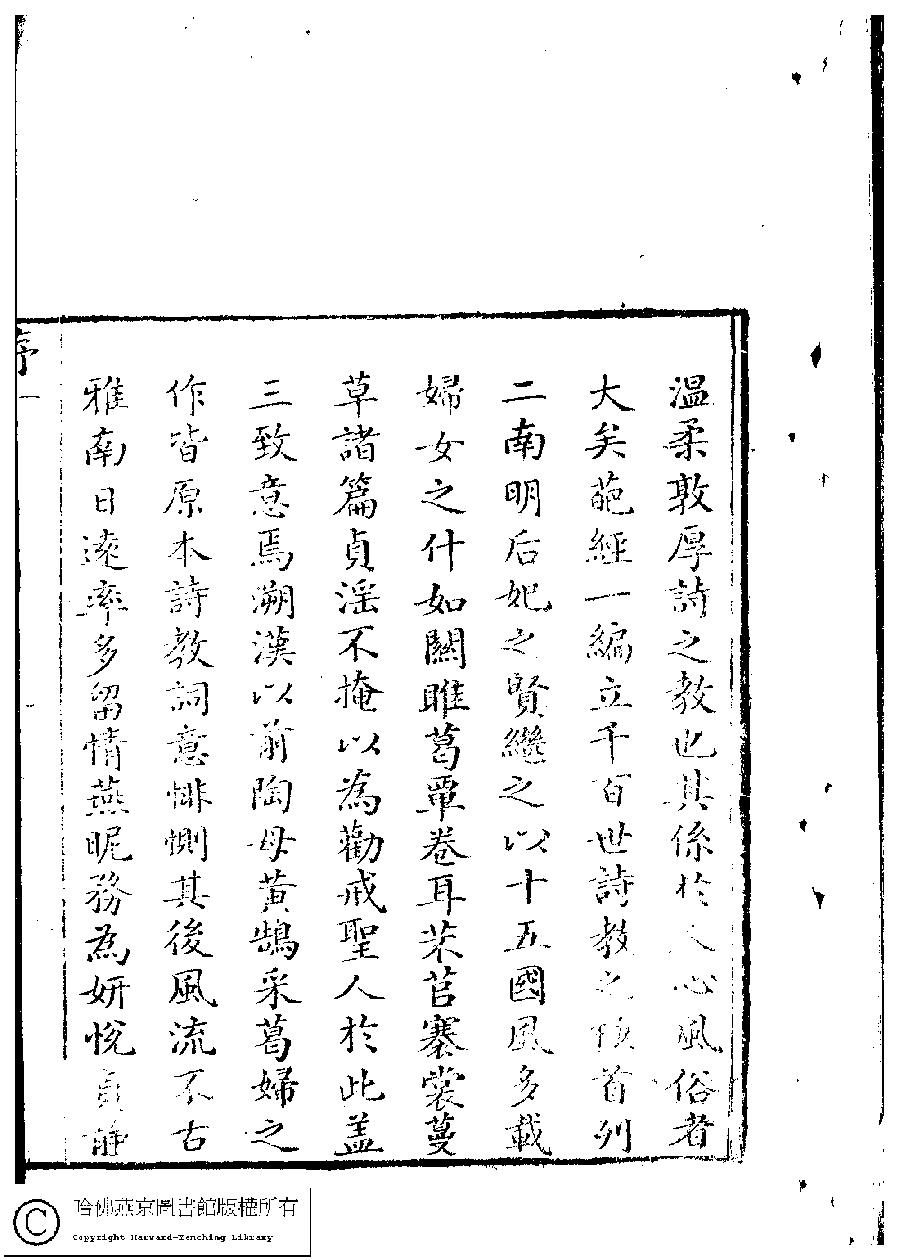 温柔敦厚詩之教也其係於人心風俗者
大矣葩經一編立千百世詩教之 首列
二南明后妃之賢繼之以十五國風多載
婦女之什如關雎葛覃卷耳芣苢褰裳蔓
草諸篇貞淫不掩以為勸戒聖人於此盖
三致意焉溯漢以前陶母黄鵠采葛婦之
作皆原本詩教詞意悱惻其後風流不古
雅南日遠率多留情燕昵務為妍悅貞靜
序
一
哈佛燕京圖書館版權所有
Copyright Harvard-Yenching Library